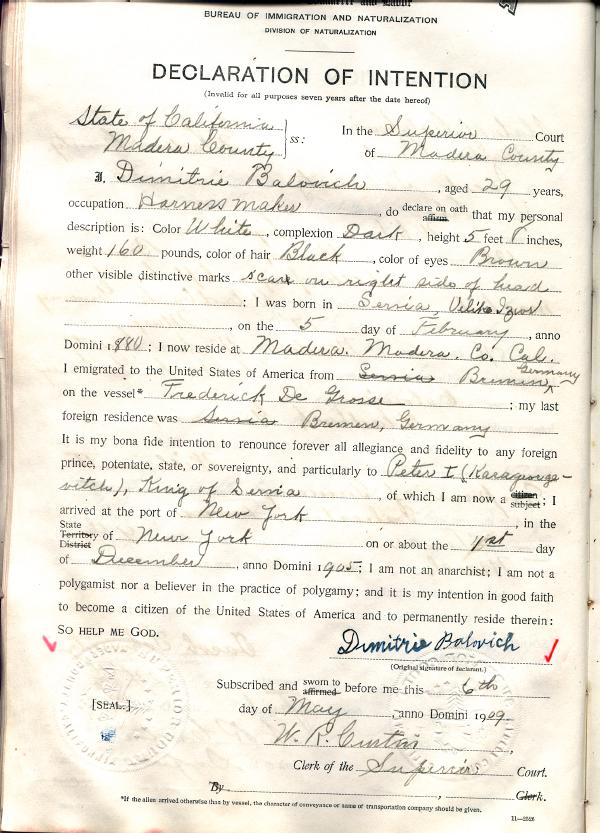 Commerce and Labor
BUREAU OF IMMIGRATION AND NATURALIZATION
DIVISION OF NATURALIZATION
DECLARATION OF INTENTION
(Invalid for all purposes seven years after the date hereof)
State of California
Madera County
ss:
In the Superior Court
of Madera County
I, Dimitrie Balovich, aged 29 years,
occupation Harness maker, do declare on oath affirm that my personal
description is: Color White, complexion Dark, height 5 feet 8 inches,
weight 160 pounds, color of hair Black, color of eyes Brown
other visible distinctive marks scar on right side of head
; I was born in Servia, Veliko Izvor
, on the 5 day of February, anno
Domini 1880; I now reside at Madera. Madera. Co. Cal.
I emigrated to the United States of America from Servia Bremen, Germany
on the vessel* Frederick De Grosse; my last
foreign residence was Servia Bremen, Germany
It is my bona fide intention to renounce forever all allegiance and fidelity to any foreign
prince, potentate, state, or sovereignty, and particularly to Peter I (Karageorge-
vitch), King of Servia, of which I am now a citizen subject; I
arrived at the port of New York, in the
State Territory District of New York on or about the 1st day
of December, anno Domini 1905; I am not an anarchist; I am not a
polygamist nor a believer in the practice of polygamy; and it is my intention in good faith
to become a citizen of the United States of America and to permanently reside therein:
SO HELP ME GOD.
Dimitrie Balovich
(Original signature of declarant.)
Subscribed and sworn to affirmed before me this 6th
[SEAL.]
day of May, anno Domini 1909
W. R. Curtin,
Clerk of the Superior Court.
By , Clerk.
*If the alien arrived otherwise than by vessel, the character of conveyance or name of transportation company should be given.
11—2526